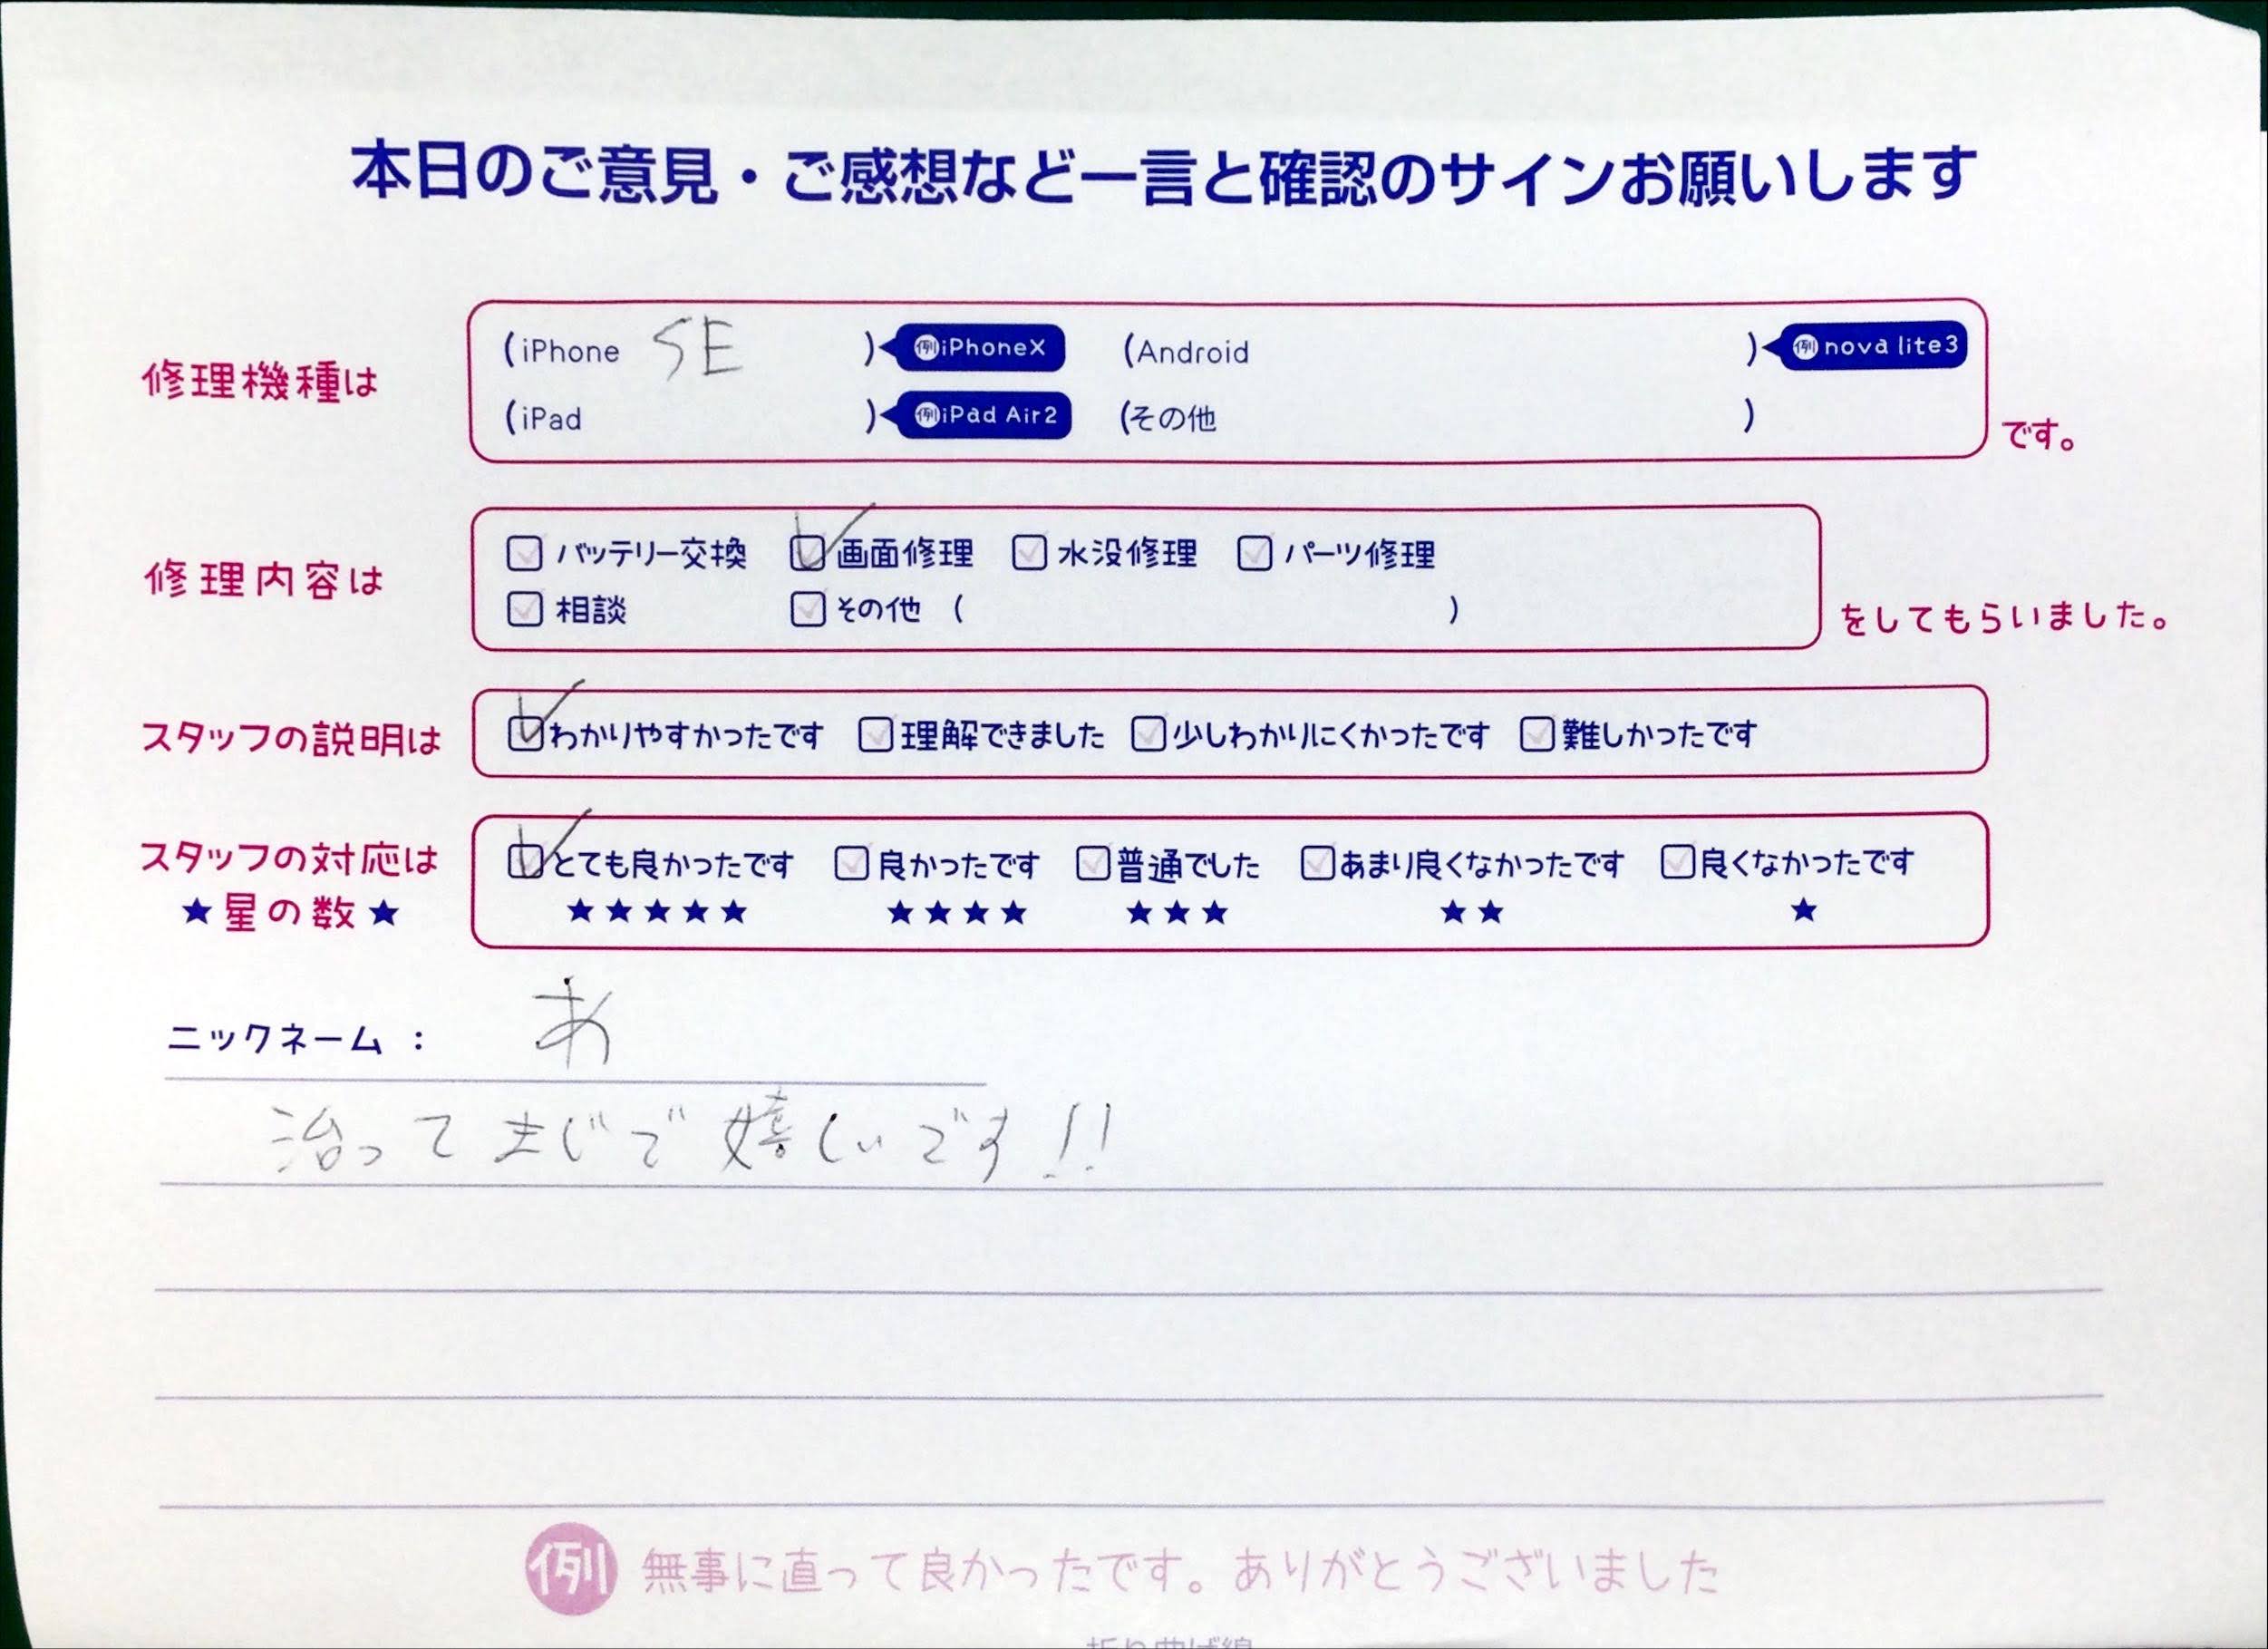 本日のご意見・ご感想など一言と確認のサインお願いします
修理機種は
(iPhone SE ) 例iPhoneX (Android ) 例 nova lite3
(iPad ) 例iPad Air2 (その他 )
です。
修理内容は
バッテリー交換 画面修理 水没修理 パーツ修理
相談 その他 ( )
をしてもらいました。
スタッフの説明は
わかりやすかったです 理解できました 少しわかりにくかったです 難しかったです
スタッフの対応は
★星の数★
とても良かったです 良かったです 普通でした あまり良くなかったです 良くなかったです
★★★★★ ★★★★ ★★★ ★★ ★
ニックネーム : あ
治ってまじで嬉しいです!!
例 無事に直って良かったです。ありがとうございました
折り曲げ線